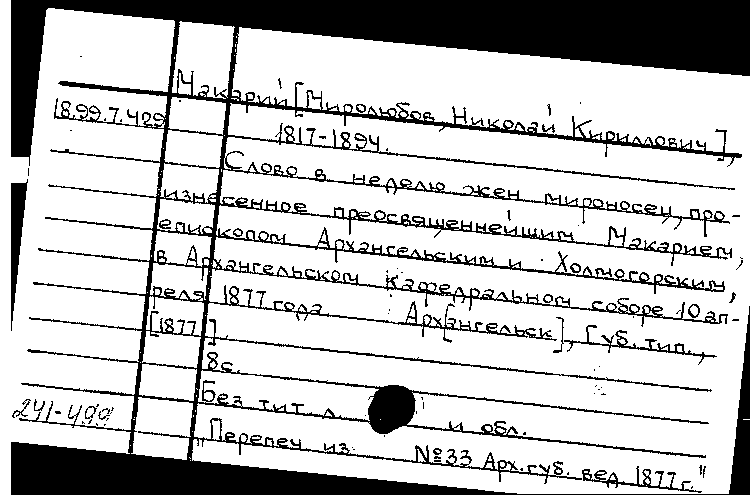 Макарий [Миролюбов, Николай Кириллович],
18.99.7.429
1817-1894.
Слово в неделю жен мироносец, про-
изнесенное преосвященнейшим Макарием,
епископом Архангельским и Холмогорским,
в Архангельском кафедральном соборе 10 ап-
реля 1877 года. Арх[ангельск], Губ. тип.,
[1877].
8с.
Без тит. л. и обл.
241-499
"Перепеч из №33 Арх. губ. вед. 1877 г."